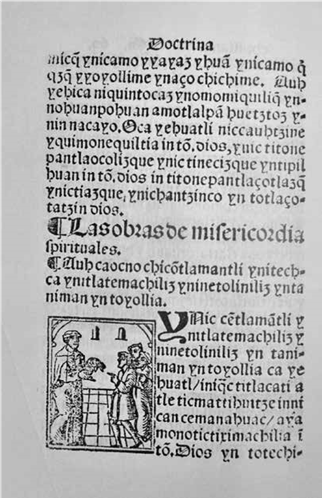 Doctrina
micꝗ ynicamo yyayaȝ yhuã ynicamo ꝗ
yyoyollime ynaço chichime. Auh
yehica niquintocaȝ ynomomiquiliꝗ yn-
nohuanpohuan amotlalpã huetȝtoȝ y-
nin nacayo. Oca yehuatli niccauhtȝine
yquimonequiltia in tõ. dios, yuic titone
pantlaocoliȝque ynic tineciȝque yntipil
huan in tõ. dios in titonepantlaçotlaȝꝗ
ynictiaȝque, ynichantȝinco yn totlaço-
tatȝin dios.
¶ Las obras de misericordia
spirituales.
¶ Auh caocno chicõtlamantli ynitech-
ca ynitlatemachiliȝ yninetoliniliȝ ynta
niman yn toyollia.
YNic cẽtlamãtli y
nitlatemachiliȝ y
ninetoliniliȝ yn tani-
man yn toyollia ca ye
huatl/ iniꝗc titlacati a
tle ticmattihuitȝe inni
can cemanahuac/ aya
monotictiximachilia ĩ
tõ. Dios yn totechi-